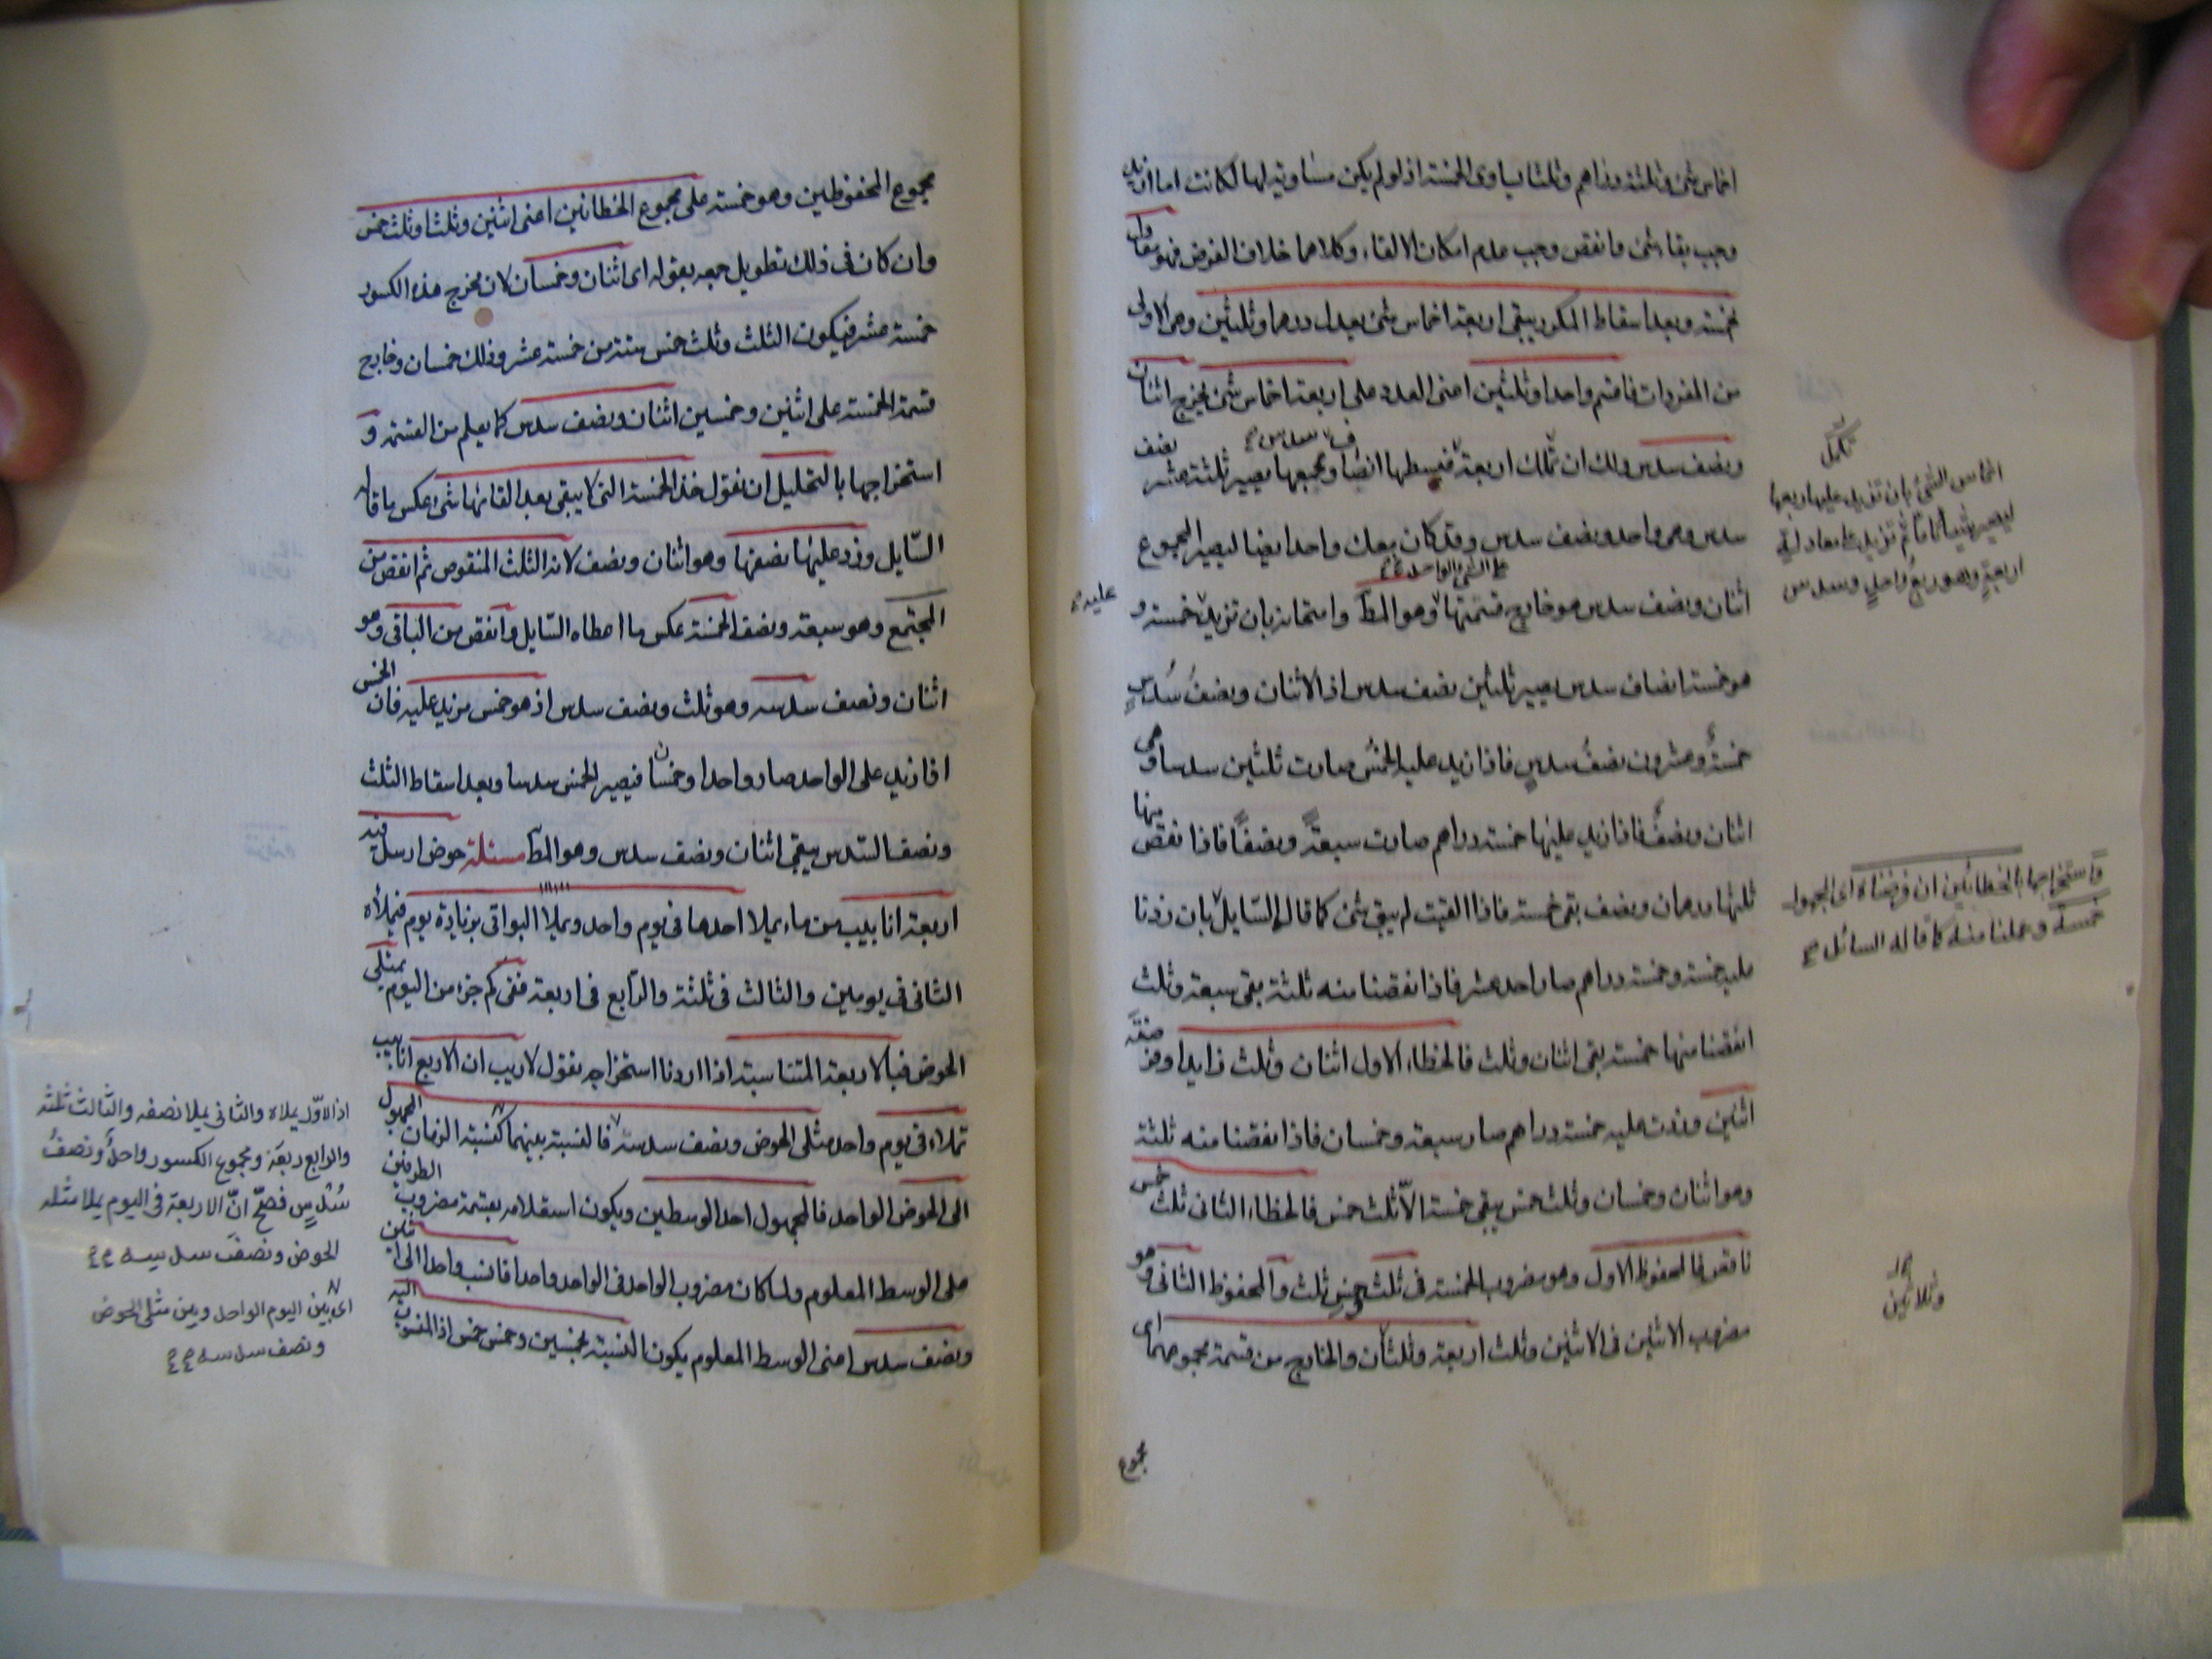 اخماس شئ وثلثة دراهم وثلثا يساوى الخمسة اذ لو لم يكن مساوية لها لكانت اما ازيد
وجب بقاء شئ وانقص وجب عدم امكان الالقاء وكلاهما خلاف الفرض فهو
خمسة وبعد اسقاط المكرر يبقى اربعة اخماس شئ يعدل درهما وثلثين وهى الاولى
من المفردات فاقسم واحدا وثلثين اعنى العدد على اربعة اخماس شئ يخرج اثنان
ونصف سدس ولك ان تملك اربعة فيسطها ايضا ويجمعها يصير ثلثة عشر نصف
سدس وهى واحد ونصف سدس وقد كان معك واحد ايضا ليصير المجموع
اثنان ونصف سدس هو خارج قسمتها وهو المط وامتحانه بان تزيد خمسة و
هو خمسة انصاف سدس يصير ثلثين نصف سدس اذ الاثنان ونصف سدس
خمسة وعشرون نصف سدس فاذا زيد عليه الخمس صارت ثلثين سدسا وهى
اثنان ونصف فاذا زيد عليها خمسة دراهم صارت سبعة ونصفا فاذا نقص منها
ثلثها درهمان ونصف بقى خمسة فاذا القيت لم يبق شئ كما قال السايل بان زدنا
عليه خمسة وخمسة دراهم صار احد عشر فاذا نقصنا منه ثلثة بقى سبعة وثلث
انقصنا منها خمسة بقى اثنان وثلث فالخطاء الاول اثنان وثلث زايدا وفرضته
اثنين وزدت عليه خمسة دراهم صار سبعة وخمسان فاذا نقصنا منه ثلثة
وهو اثنان وخمسان وثلث خمس يبقى خمسة الا ثلث خمس فالخطاء الثانى ثلث خمس
ناقص فالمحفوظ الاول وهو مضروب الخمسة فى ثلث خمس ثلث والمحفوظ الثانى وهو
مضروب الاثنين فى الاثنين وثلث اربعة وثلثان والخارج من قسمة مجموعهما اى
مجموع
تكميل
اخماس الشئ بان تزيد عليها ربعها
ليصير شيئا تاما ثم تزيد على معادل
اربعة وهو ربع واحد وسدس
عليه
واستخراجها بالخطائين ان فرضناه اى المجهول
خمسة وعملنا منه كما قاله السائل
وثلاثين
مجموع المحفوظين وهو خمسة على مجموع الخطائين اعنى اثنين وثلثا وثلث خمس
وان كان فى ذلك تطويل جمعه بقوله اى اثنان وخمسان لان مخرج هذه الكسور
خمسة عشر فيكون الثلث وثلث خمس ستة من خمسة عشر وذلك خمسان وخارج
قسمة الخمسة على اثنين وخمسين اثنان ونصف سدس كما يعلم من القسمة و
استخراجها بالتحليل ان نقول خذ الخمسة التى لا يبقى بعد القائها شئ عكس ما قال
السايل وزد عليها نصفها وهو اثنان ونصف لانه الثلث المنقوص ثم انقص من
المجتمع وهو سبعة ونصف الخمسة عكس ما اعطاه السايل وانقص من الباقى وهو
اثنان ونصف سدسه وهو ثلث ونصف سدس اذ هو خمس مزيد عليه فان الخمس
اذا زيد على الواحد صار واحدا وخمسا فيصير الخمس سدسا وبعد اسقاط الثلث
ونصف السدس يبقى اثنان ونصف سدس وهو المط مسئلة حوض ارسل فيه
اربعة انابيب من ماء يملا احدها فى يوم واحد ويملا البواقى بزيادة يوم فيملاه
الثانى فى يومين والثالث فى ثلثة والرابع فى اربعة ففى كم جزء من اليوم يمتلى
الحوض فبالاربعة المتناسبة اذا اردنا استخراجه نقول لا ريب ان الاربع انابيب
تملاء فى يوم واحد مثلى الحوض ونصف سدسه فالنسبة بينهما كنسبة الزمان المجهول
الى الحوض الواحد فالمجهول احد الوسطين ويكون استعلامه بقسمة مضروب الطرفين
على الوسط المعلوم ولما كان مضروب الواحد فى الواحد واحدا فانسب واحدا الى اثنين
ونصف سدس اعنى الوسط المعلوم يكون النسبة بخمسين وخمس خمس اذ المنسوب اليه
اذ الاول يملاه والثانى يملا نصفه والثالث ثلثه
والرابع ربعه ومجموع الكسور واحد ونصف
سدس فصح ان الاربعة فى اليوم يملا مثله
الحوض ونصف سدسه
اى بين اليوم الواحد وبين مثلى الحوض
ونصف سدسه